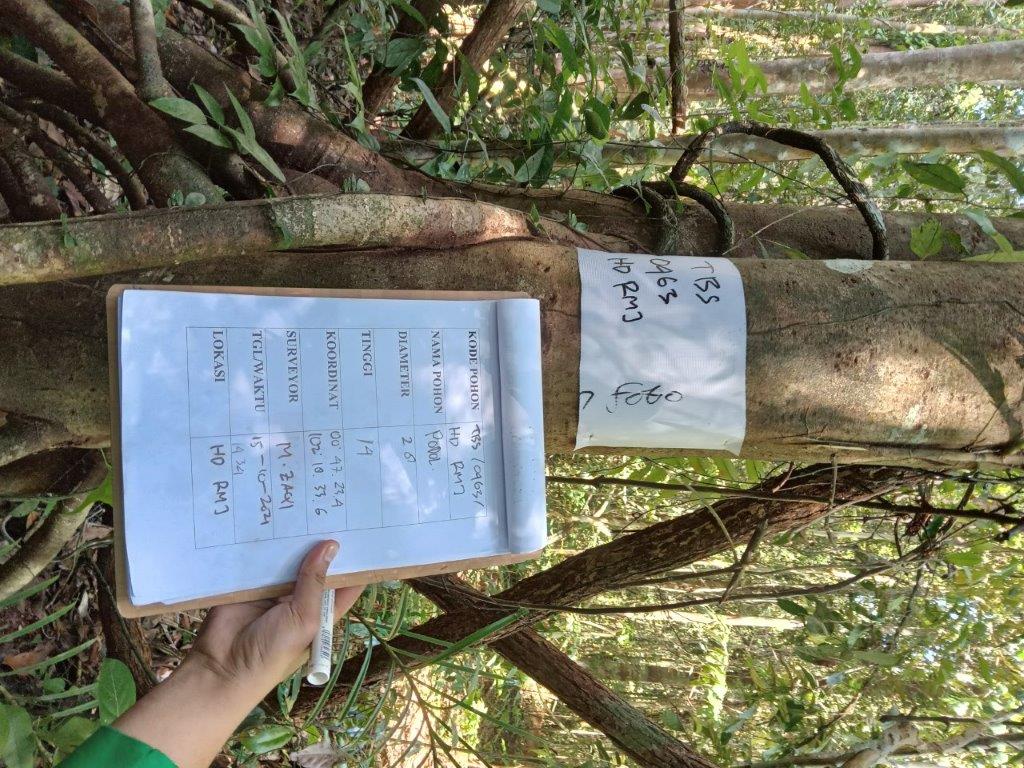 TBS
0463
HD RMJ
KODE POHON TBS /0463/
HD RMJ
NAMA POHON PODOL.
DIAMETER
TINGGI 14
KOORDINAT 00° 47. 23,4
102° 10. 33. 6
SURVEYOR M. ZAQI
TGL/WAKTU 15-10-2021
LOKASI HD RMJ